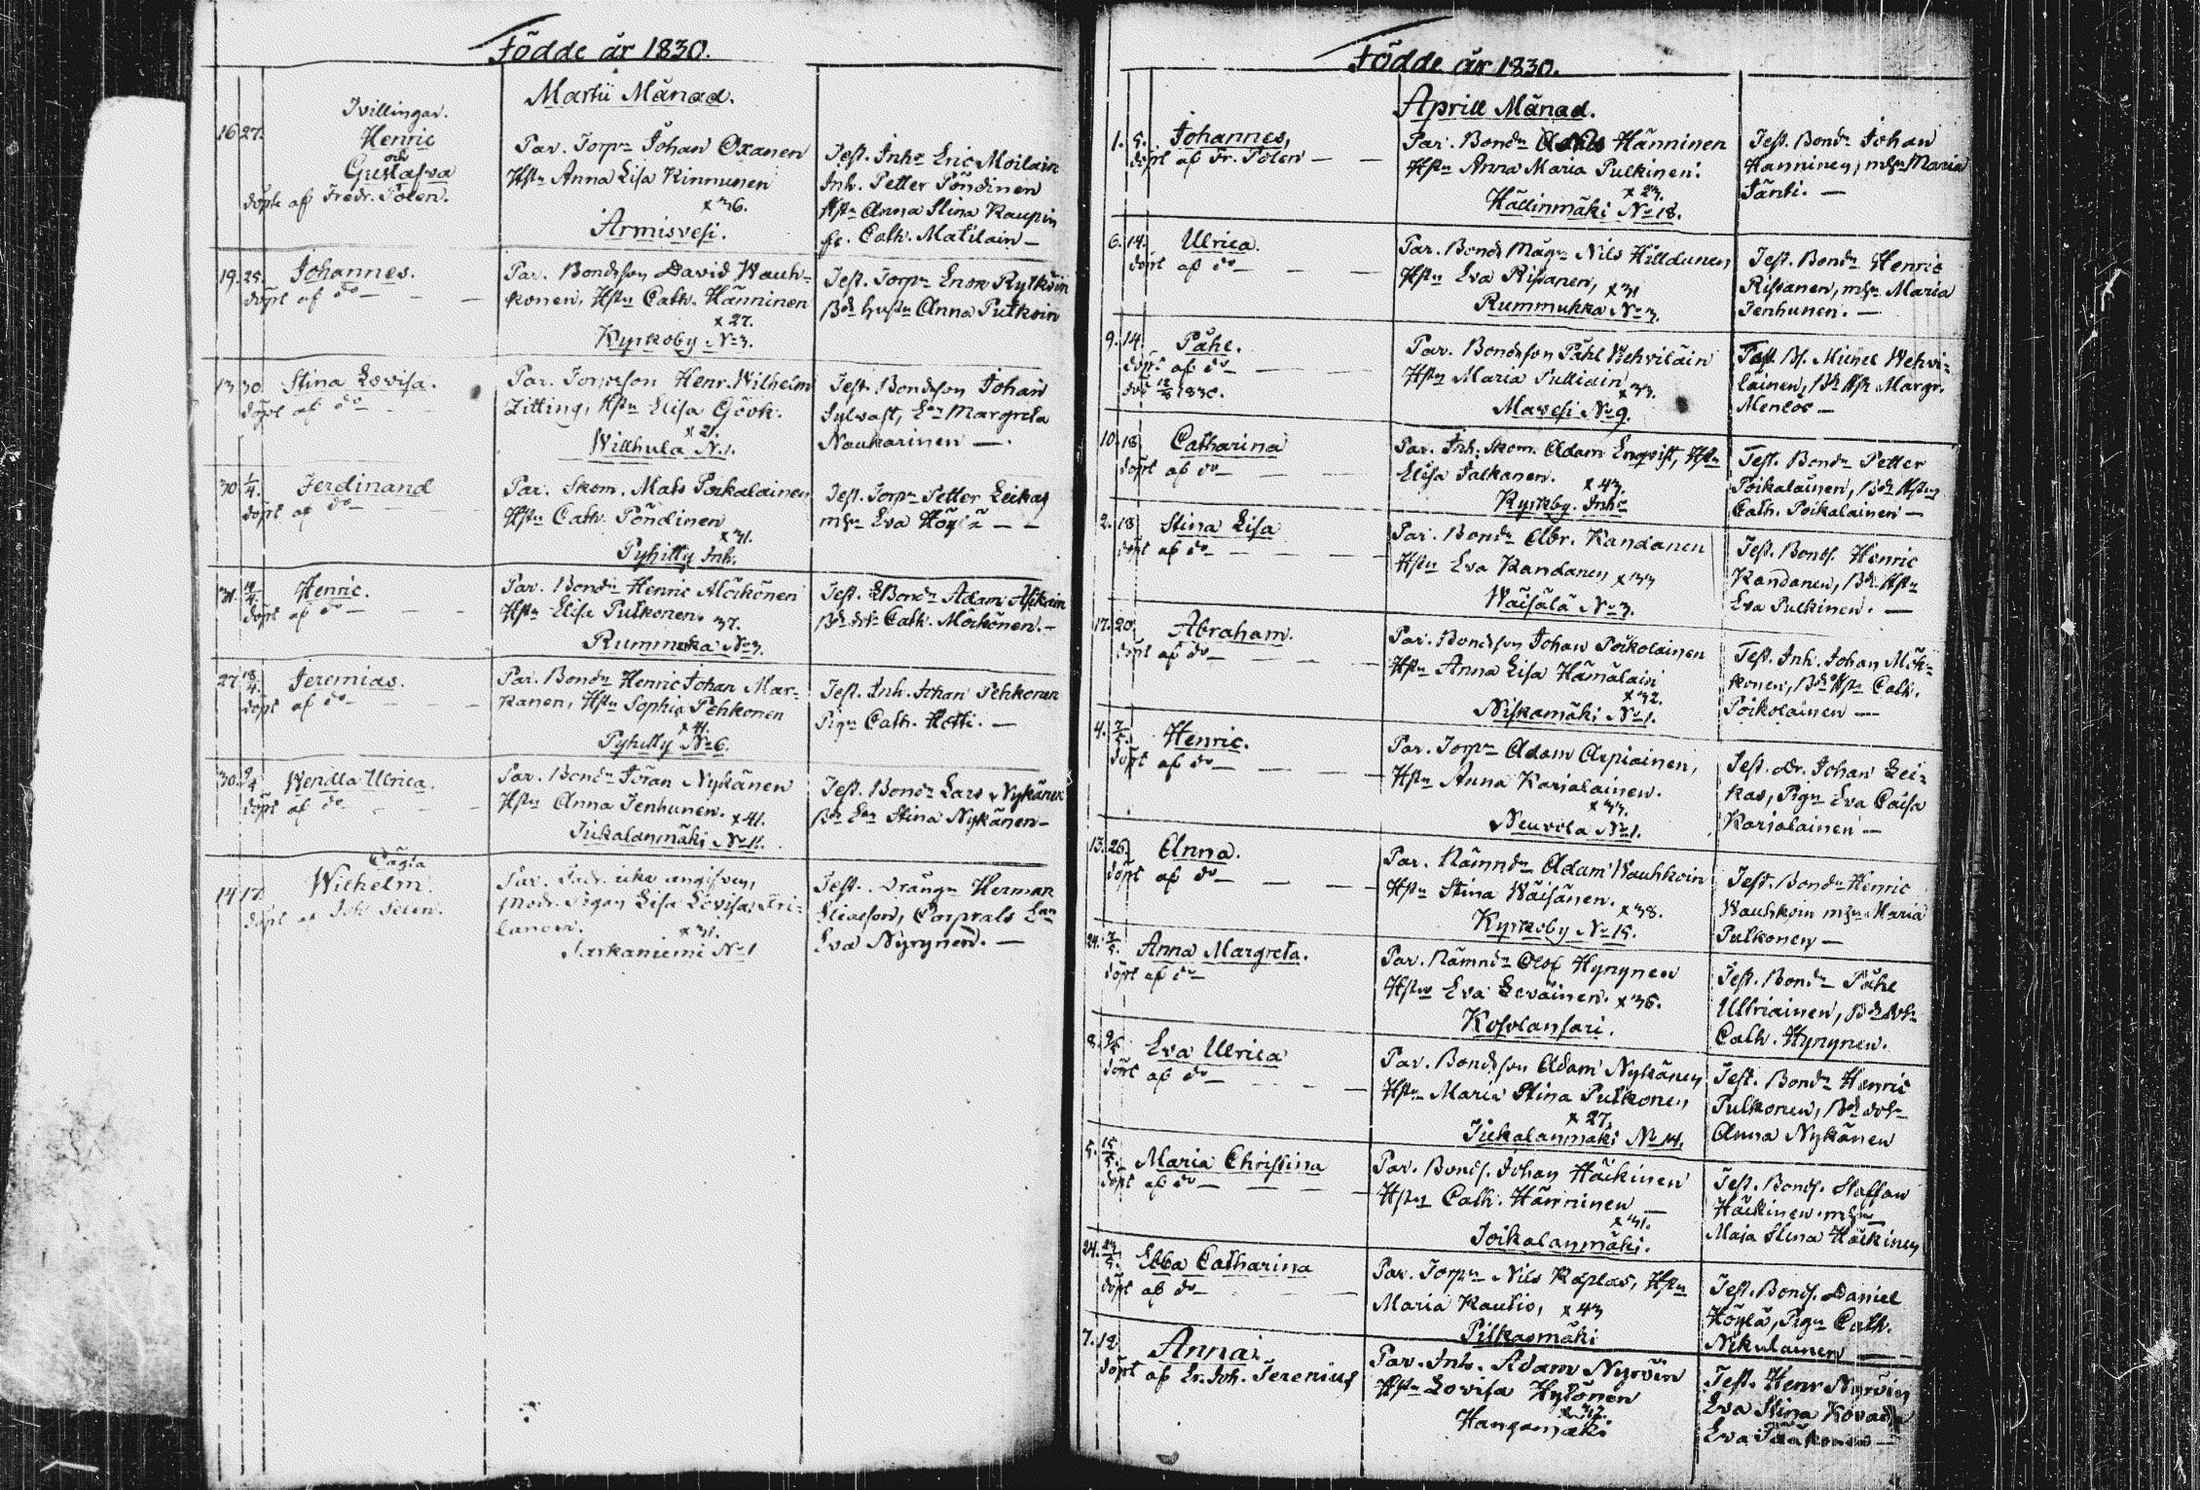 Födde år 1830.
Martii Månad.
Tvillingar.
16 27. Henric
och
Gustafva
döpte af Fredr. Polen.
Par. Torpn Johan Oxanen
Hstn Anna Lisa Kinnunen
x 36.
Armisvesi.
Test. Inhr Eric Moilain
Inh. Petter Pöndinen
Hstn Anna Stina Kaupin
Cath. Matilain —
19. 25. Johannes.
döpt af do — — —
Par. Bondeson David Wauh-
konen, Hstn Cath. Hänninen
x 27.
Kyrkoby No 3.
Test. Torpn Enok Rytköin
Anna Putkoin
13 30 Stina Lovisa.
döpt af do
Par. Torpeson Henr. Wilhelm
Zitting, Hstn Elisa Göök.
x 21.
Willhula No 1.
Test. Bondeson Johan
Sylvast, Margreta
Naukarinen —.
30 1/4. Ferdinand
döpt af do — — —
Par. Skom. Mats Poikalainen
Hstn Cath. Pöndinen
x 31.
Pyhitty Inh.
Test. Torpn Petter Leikas
Eva Höylä — —
31. Henric.
döpt af do — — —
Par. Bondn Henric Mörkönen
Hstn Elisa Pulkonen. 37.
Rummuka No 3.
Test. Bondn Adam Asikain
Cath. Mörkönen. —
27 18/4. Jeremias.
döpt af do — — —
Par. Bondn Henric Johan Mar-
kanen, Hstn Sophia Pehkonen
x 41.
Pyhitty No 6.
Test. Inh. Johan Pehkonen
Pign Cath. Hotti. —
30. 9/4 Wendla Ulrica.
döpt af do
Par. Bondn Jöran Nykänen
Hstn Anna Jenhunen. x 41.
Tukalanmäki No 11.
Test. Bondn Lars Nykänen
Stina Nykänen —
Oägta
14 17. Wilhelm.
döpt af Joh. Selen.
Par. Fadr. icke angifven,
Modr. Pigan Lisa Lovisa
lander.
x 31.
No 1
Test. Drängn Herman
Corprals
Eva Nyrynen. —
Födde år 1830.
Aprill Månad.
1. 5. Johannes,
döpt af Fr. Polen — —
Par. Bondn Hänninen
Hstn Anna Maria Pulkinen.
x 23.
Hällinmäki No 18.
Test. Bondn Johan
Hänninen, Maria
Tänti. —
6. 14. Ulrica.
döpt af do — — —
Par. Bonds Mågn Nils Hilldunen
Hstn Eva Rissanen, x 31
Rummukka No 3.
Test. Bondn Henric
Rissanen, Maria
Jenhunen. —
9. 14. Påhl.
döpt af do —
1830.
Par. Bondeson Påhl Wehviläin
Hstn Maria Pulliain
x 33.
Mavesi No 9.
Test. Michel Wehvi-
läinen, Margr.
10. 18. Catharina
döpt af do — — —
Par. Inh. Skom. Adam Enqvist, Hstn
Elisa Jalkanen.
x 43
Kyrkby. Inhr
Test. Bondn Petter
Poikalainen,
Cath. Poikalainen —
2. 18 Stina Lisa
döpt af do — — —
Par. Bondn Abr. Kandanen
Hstn Eva Kandanen x 33
Wäisälä No 3.
Test. Bonds. Henric
Kandanen,
Eva Pulkinen. —
17. 20. Abraham.
döpt af do — — —
Par. Bondeson Johan Poikolainen
Hstn Anna Lisa Hämäläin
x 32.
Niskamäki No 1.
Test. Inh. Johan Mök-
könen, Cath.
Poikolainen —
4. 2/5. Henric.
döpt af do — — —
Par. Torpn Adam Arpiainen,
Hstn Anna Karjalainen.
x 33.
Neuvola No 1.
Test. Dr. Johan Lei-
kas, Pign Eva Caisa
Karjalainen —
13. 26. Anna.
döpt af do — — —
Par. Nämndn Adam Wauhkoin
Hstn Stina Wäisänen.
x 38.
Kyrkoby No 15.
Test. Bondn Henric
Wauhkoin Maria
Pulkonen —
24. 2/5. Anna Margreta.
döpt af do —
Par. Nämndn Olof Hynynen
Hstn Eva Leväinen. x 36.
Kosolansari.
Test. Bondn Påhl
Ullriainen,
Cath. Hynynen.
8. 9/5 Eva Ulrica
döpt af do — — —
Par. Bondeson Adam Nykänen
Hstn Maria Stina Pulkonen
x 27.
Tukalanmäki No 14.
Test. Bondn Henric
Pulkonen,
Anna Nykänen
5. 15/5. Maria Christina
döpt af do — — —
Par. Bonds. Johan Häikinen
Hstn Cath. Hänninen —
x 31.
Toikalanmäki.
Test. Bonds. Staffan
Häikinen
Maja Stina Häikinen
24. 23/5. Ebba Catharina
döpt af do — — —
Par. Torpn Nils Kaplas, Hstn
Maria Kautio, x 43
Pilkasmäki
Test. Bonds. Daniel
Höylä, Pign Cath.
Nikulainen —
7. 12. Anna.
döpt af Joh. Terenius
Par. Inh. Adam Nyröin
Hstn Lovisa Hytönen
Hangasmäki
Test. Henr Nyröin,
Eva Stina
Eva